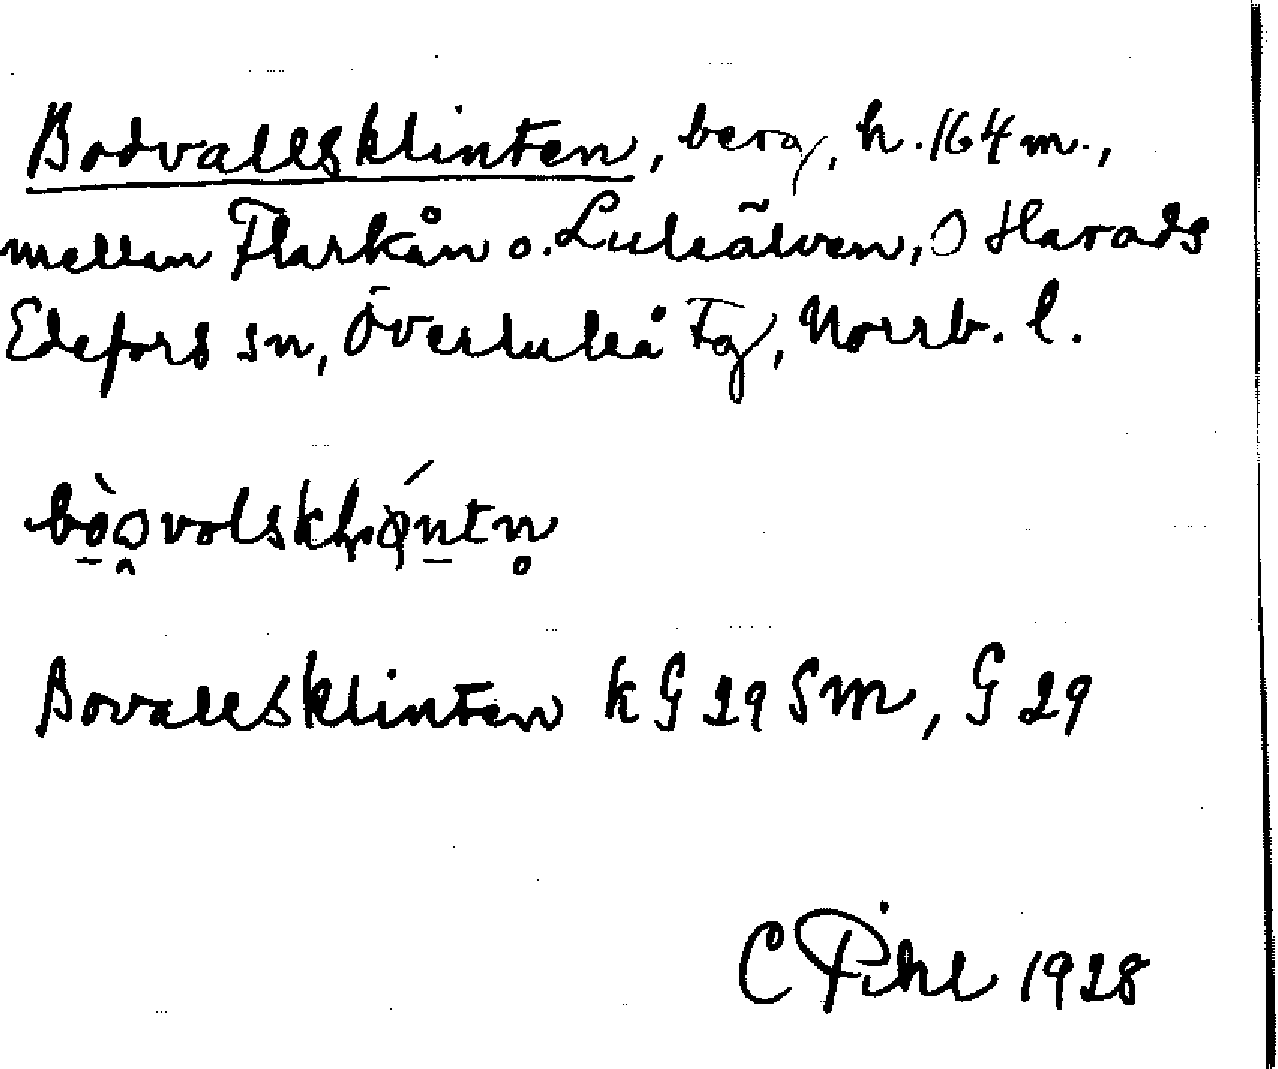 Bodvallsklinten, berg, h. 164 m.,
mellan Flarkån o. Luleälven, O Harads
Edefors sn, Överluleå Tg, Norrb. l.
Bovallsklinten k G 29 Sm, G 29
C Pihl 1928